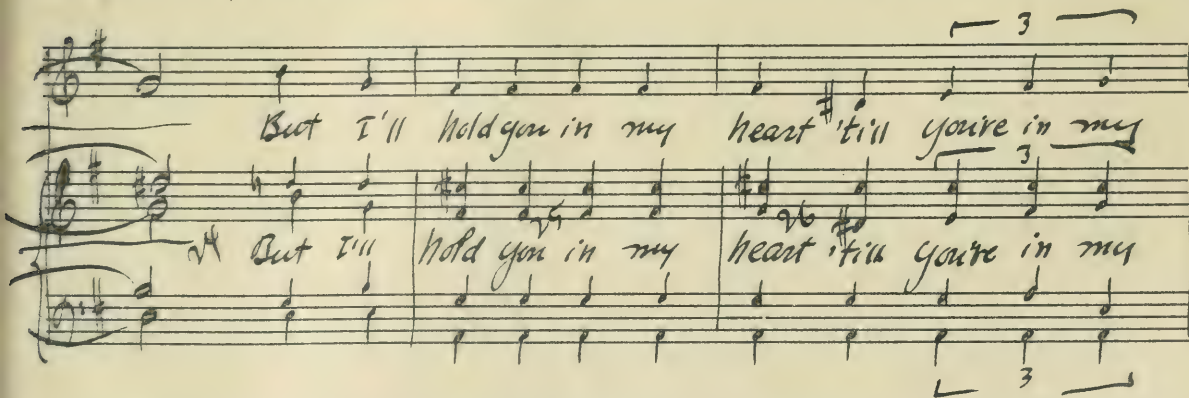 3
But I'll hold you in my heart 'till you're in my
3
But I'll hold you in my heart 'till you're in my
3